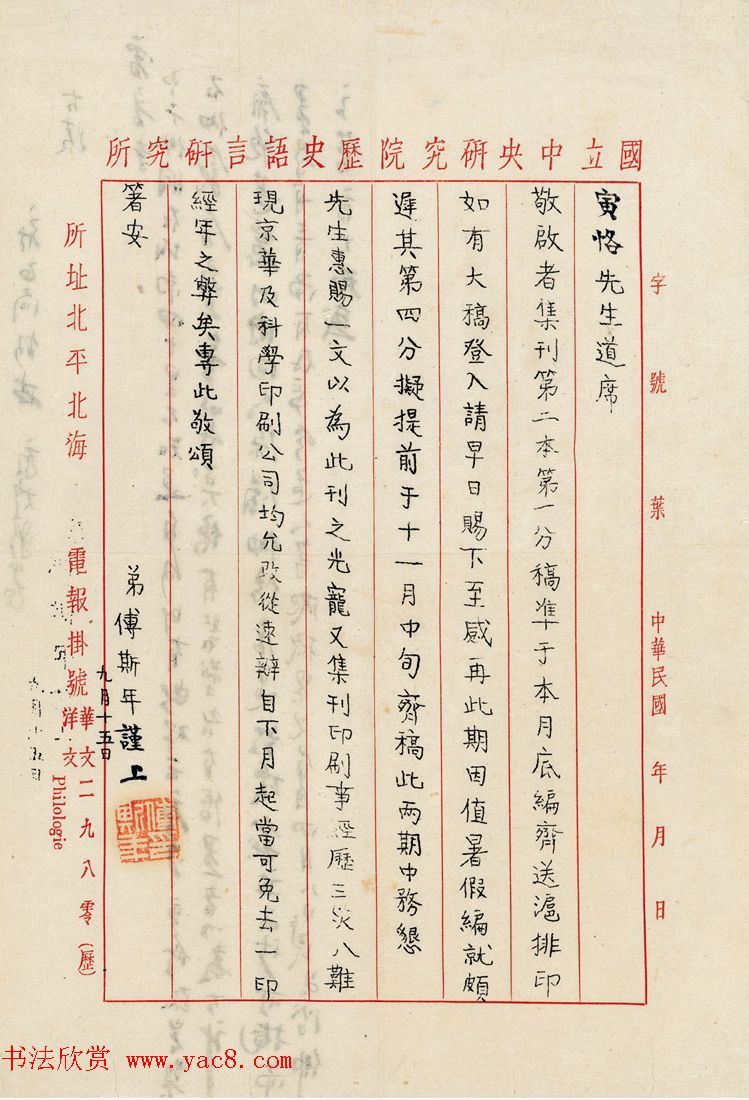 國立中央研究院歷史語言研究所
字 號 葉 中華民國 年 月 日
寅恪先生道席
敬啟者集刊第二本第一分稿準于本月底編齊送滬排印
如有大稿登入請早日賜下至感再此期因值暑假編就頗
遲其第四分擬提前于十一月中旬齊稿此兩期中務懇
先生惠賜一文以為此刊之光寵又集刊印刷事經歷三災八難
現京華及科學印刷公司均允改從速辦自下月起當可免去一印
經年之弊矣專此敬頌
箸安
弟傅斯年謹上
九月十五日
傅斯年印
所址北平北海 電報掛號 華文二九八零(歷)
洋文 Philologie
书法欣赏 www.yac8.com